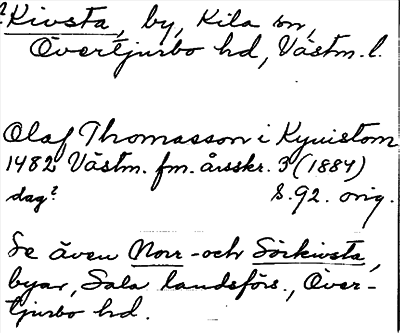 ?Kivsta, by, Kila sn,
Övertjurbo hd, Västm. l.
Olaf Thomasson i Kyuistom
1482 Västm. fm. årsskr. 3 (1884)
dag? S. 92. orig.
Se även Norr- och Sörkivsta,
byar, Sala landsförs., Över-
tjurbo hd.